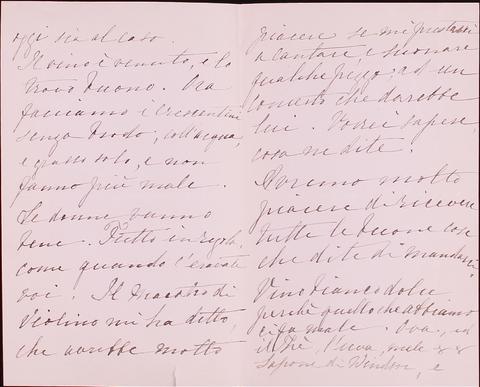 oggi sia al caso.
Il vino è venuto, e lo
trovo buono. Ora
facciamo i Crescentini
senza brodo, coll'acqua,
e grasso solo, e non
fanno più male.
Le donne vanno
bene. Tutto in regola,
come quando c'eravate
voi. Il Maestro di
Violino mi ha detto,
che avrebbe molto
piacere se mi prestassi
a cantare, e suonare
qualche pezzo, ad un
concerto che darebbe
lui. Vorrei sapere,
cosa ne dite.
Avremo molto
piacere di ricevere
tutte le buone cose
che dite di mandarci
Vino bianco dolce
perchè quello che abbiamo
ci fa male. Ova, ed
il Thè, Pueva, mele &&
Sapone di Windsor, e